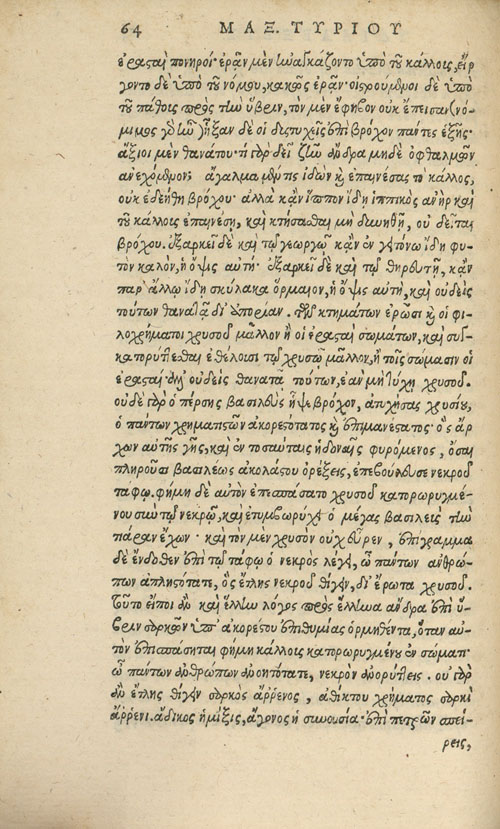 64 ΜΑΞ. ΤΥΡΙΟΥ
ἐρασταὶ πονηροί· ἐρᾷν μὲν ἠναγκάζοντο ὑπὸ τοῦ κάλλους, εἴρ
γοντο δὲ ὑπὸ τοῦ νόμου, κακῶς ἐρᾷν· οἰστρούμενοι δὲ ὑπὸ
τοῦ πάθους πρὸς τὴν ὕβριν, τὸν μὲν ἔφηβον οὐκ ἔπεισαν (νό-
μιμος γὰρ ἦν) ᾖξαν δὲ οἱ δυστυχεῖς ἐπὶ βρόχον πάντες ἑξῆς·
ἄξιοι μὲν θανάτου· τί γὰρ δεῖ ζῆν ἄνδρα μηδὲ ὀφθαλμῶν
ἀνεχόμενον; ἄγαλμα μέν τις ἰδὼν καὶ ἐπαινέσας τὸ κάλλος,
οὐκ ἐδεήθη βρόχου· ἀλλὰ κἂν ἵππον ἴδῃ ἱππικὸς ἀνὴρ καὶ
τοῦ κάλλους ἐπαινέσῃ, καὶ κτήσασθαι μὴ δυνηθῇ, οὐ δεῖται
βρόχου. ἐξαρκεῖ δὲ καὶ τῷ γεωργῷ κἂν ἐν γειτόνων ἴδῃ φυ-
τὸν καλὸν, ἡ ὄψις αὐτή· ἐξαρκεῖ δὲ καὶ τῷ θηρευτῇ, κἂν
παρ' ἄλλῳ ἴδῃ σκύλακα ὡραῖον, ἡ ὄψις αὐτή, καὶ οὐδεὶς
τούτων θανατᾷ δι' ἀπορίαν. τῶν κτημάτων ἐρῶσι καὶ οἱ φι-
λοχρήματοι χρυσοῦ μᾶλλον ἢ οἱ ἐρασταὶ σωμάτων, καὶ συγ-
κατορύττεσθαι ἐθέλουσι τῷ χρυσῷ μᾶλλον, ἢ τοῖς σώμασιν οἱ
ἐρασταί· ἀλλ' οὐδεὶς θανατᾷ τούτων, ἐὰν μὴ τύχῃ χρυσοῦ.
οὐδὲ γὰρ ὁ πέρσης βασιλεὺς ἧψε βρόχον, ἀτυχήσας χρυσίου,
ὁ πάντων χρηματιστῶν ἀκορεστότατος καὶ ἐπιμανέστατος· ὃς ἄρ
χων αὐτῆς γῆς, καὶ ἐν τοσαύταις ἡδοναῖς φυρόμενος, ὅσαι
πληροῦσι βασιλέως ἀκολάστου ὀρέξεις, ἐπεβούλευσε νεκροῦ
τάφῳ. φήμη δὲ αὐτὸν ἐπεσπάσατο χρυσοῦ κατορωρυγμέ-
νου σὺν τῷ νεκρῷ, καὶ ἐτυμβωρύχει ὁ μέγας βασιλεὺς τὴν
τιάραν ἔχων· καὶ τὸν μὲν χρυσὸν οὐχ εὗρεν, ἐπίγραμμα
δὲ ἔνδοθεν ἐπὶ τῷ τάφῳ ὁ νεκρὸς λέγει, ὦ πάντων ἀνθρώ-
πων ἀπληστότατε, ὃς ἔτλης νεκροῦ θιγεῖν, δι' ἔρωτα χρυσοῦ.
τοῦτο εἴποι ἂν καὶ ἕλλην λόγος πρὸς ἕλληνα ἄνδρα ἐπὶ ὕ-
βριν σαρκῶν ὑπ' ἀκορέστου ἐπιθυμίας ὁρμηθέντα, ὅταν αὐ-
τὸν ἐπισπάσηται φήμη κάλλους κατορωρυγμένου ἐν σώματι·
ὦ πάντων ἀνθρώπων ἀνοητότατε, νεκρὸν ἀνορύττεις. οὐ γὰρ
ἂν ἔτλης θιγεῖν σαρκὸς ἄῤῥενος, ἀθίκτου χρήματος σαρκὶ
ἄῤῥενι. ἄδικος ἡ μίξις, ἄγονος ἡ συνουσία· ἐπὶ πετρῶν σπεί-
ρεις,